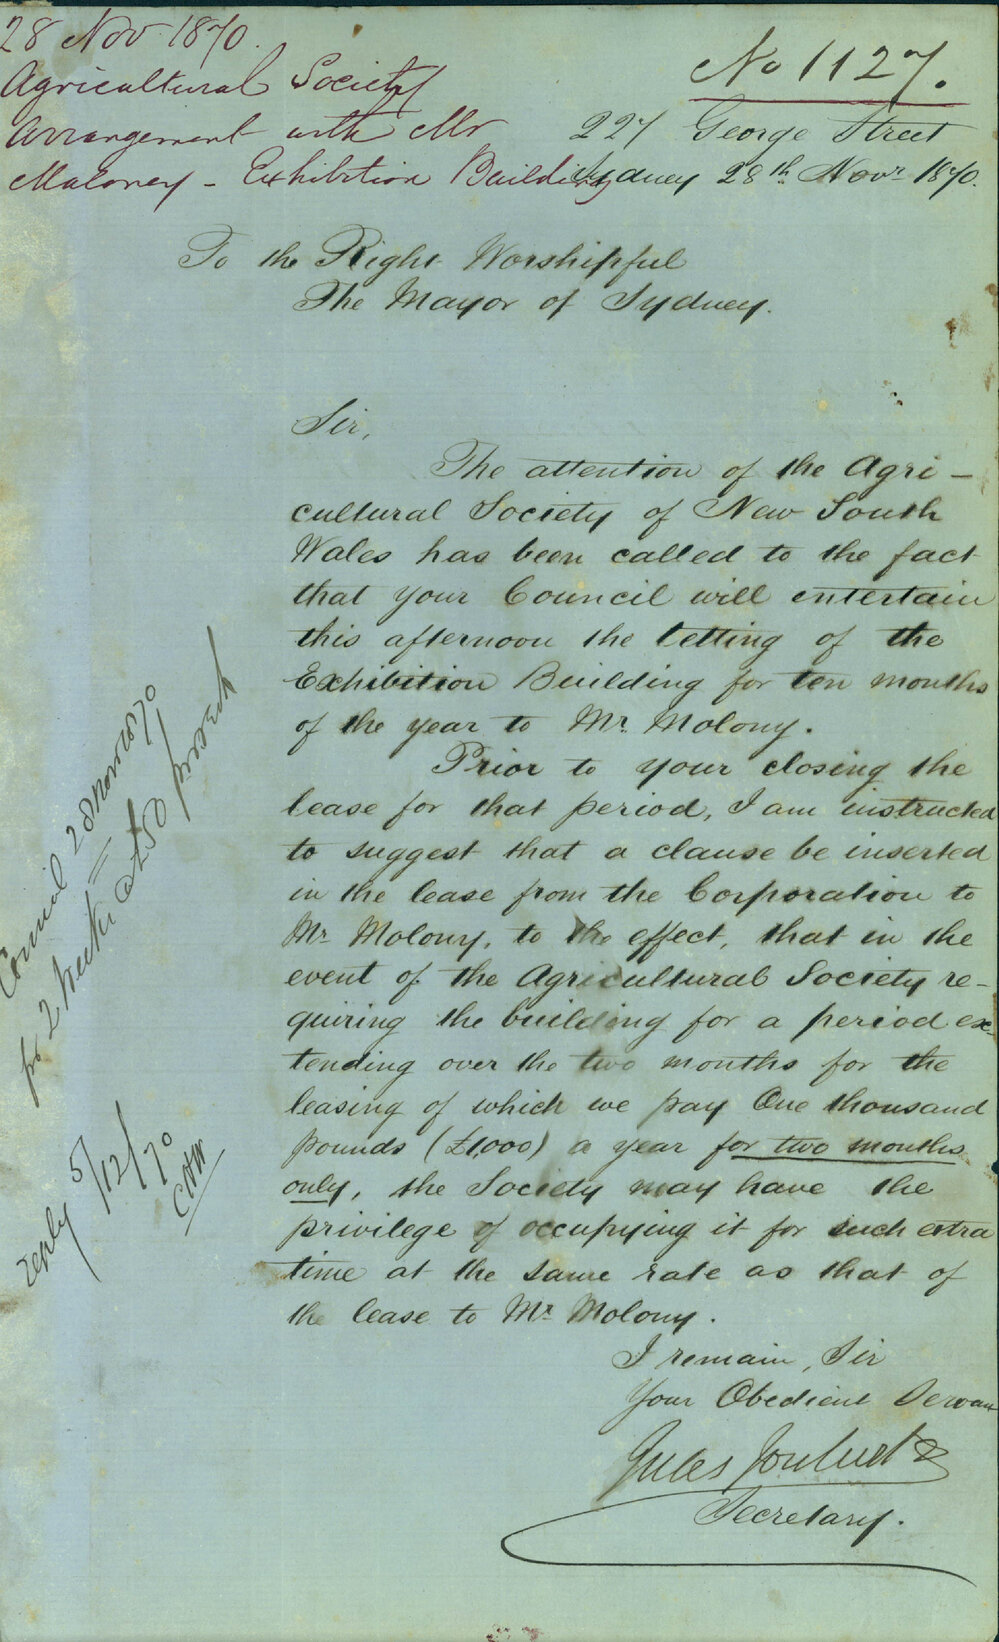 28 Nov. 1870.
Agricultural Society
Arrangement with Mr
Maloney - Exhibition Building
No 1127.
227 George Street
Sydney 28th Novr 1870.
To the Right Worshipful
The Mayor of Sydney.
Sir,
The attention of the Agri-
cultural Society of New South
Wales has been called to the fact
that your Council will entertain
this afternoon the letting of the
Exhibition Building for ten months
of the year to Mr. Molony.
Prior to your closing the
lease for that period, I am instructed
to suggest that a clause be inserted
in the lease from the Corporation to
Mr Molony, to the effect, that in the
event of the Agricultural Society re-
quiring the building for a period ex-
tending over the two months for the
leasing of which we pay One thousand
pounds (£1,000) a year for two months
only, the Society may have the
privilege of occupying it for such extra
time at the same rate as that of
the lease to Mr Molony.
I remain, Sir
Your Obedient Servan
Jules Joubert
Secretary.
Council 28 Nov 1870
for 2 at £50 per week
reply 5/12/70
CHW